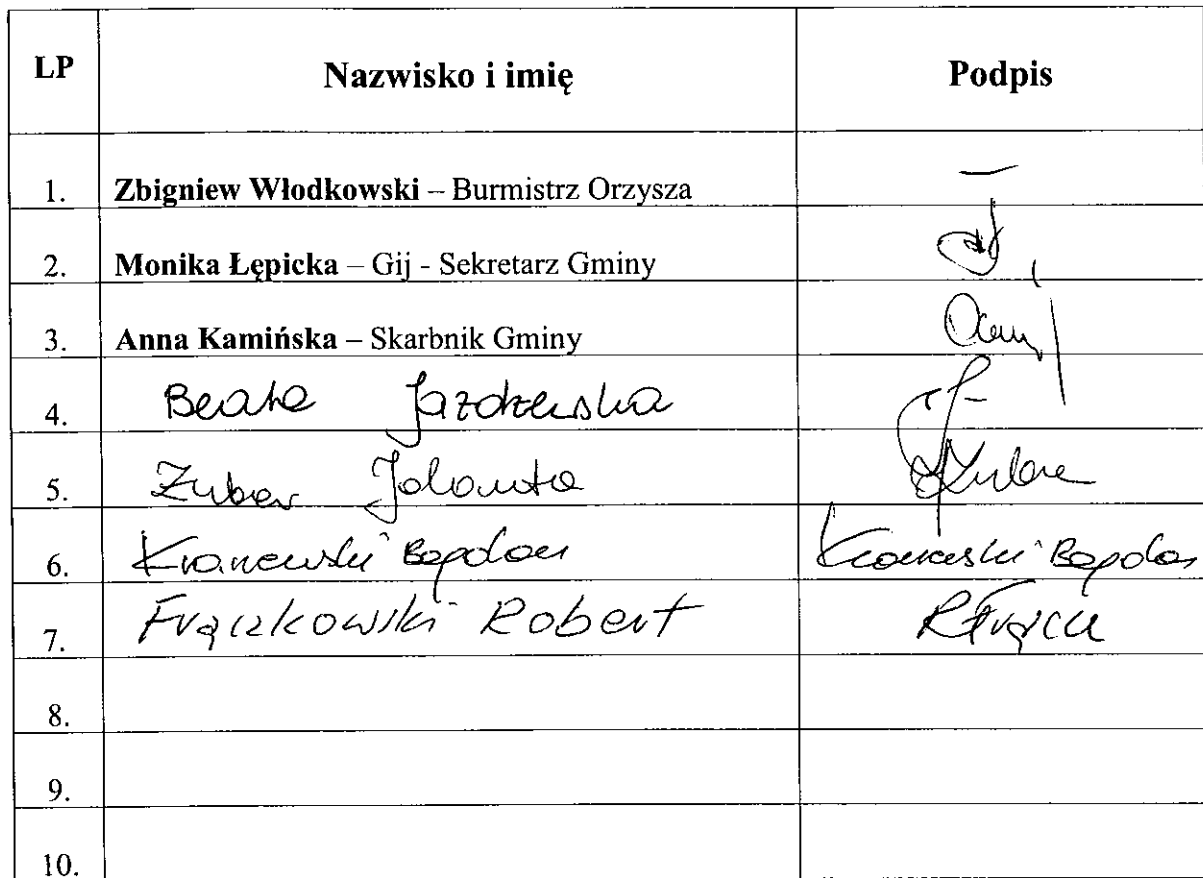 LP Nazwisko i imię Podpis
1. Zbigniew Włodkowski – Burmistrz Orzysza –
2. Monika Łępicka – Gij - Sekretarz Gminy
3. Anna Kamińska – Skarbnik Gminy
4. Beata Jazdzewska
5. Zuber Jolanta
6. Kranewski Bogdan Bogdan
7. Frączkowski Robert
8.
9.
10.